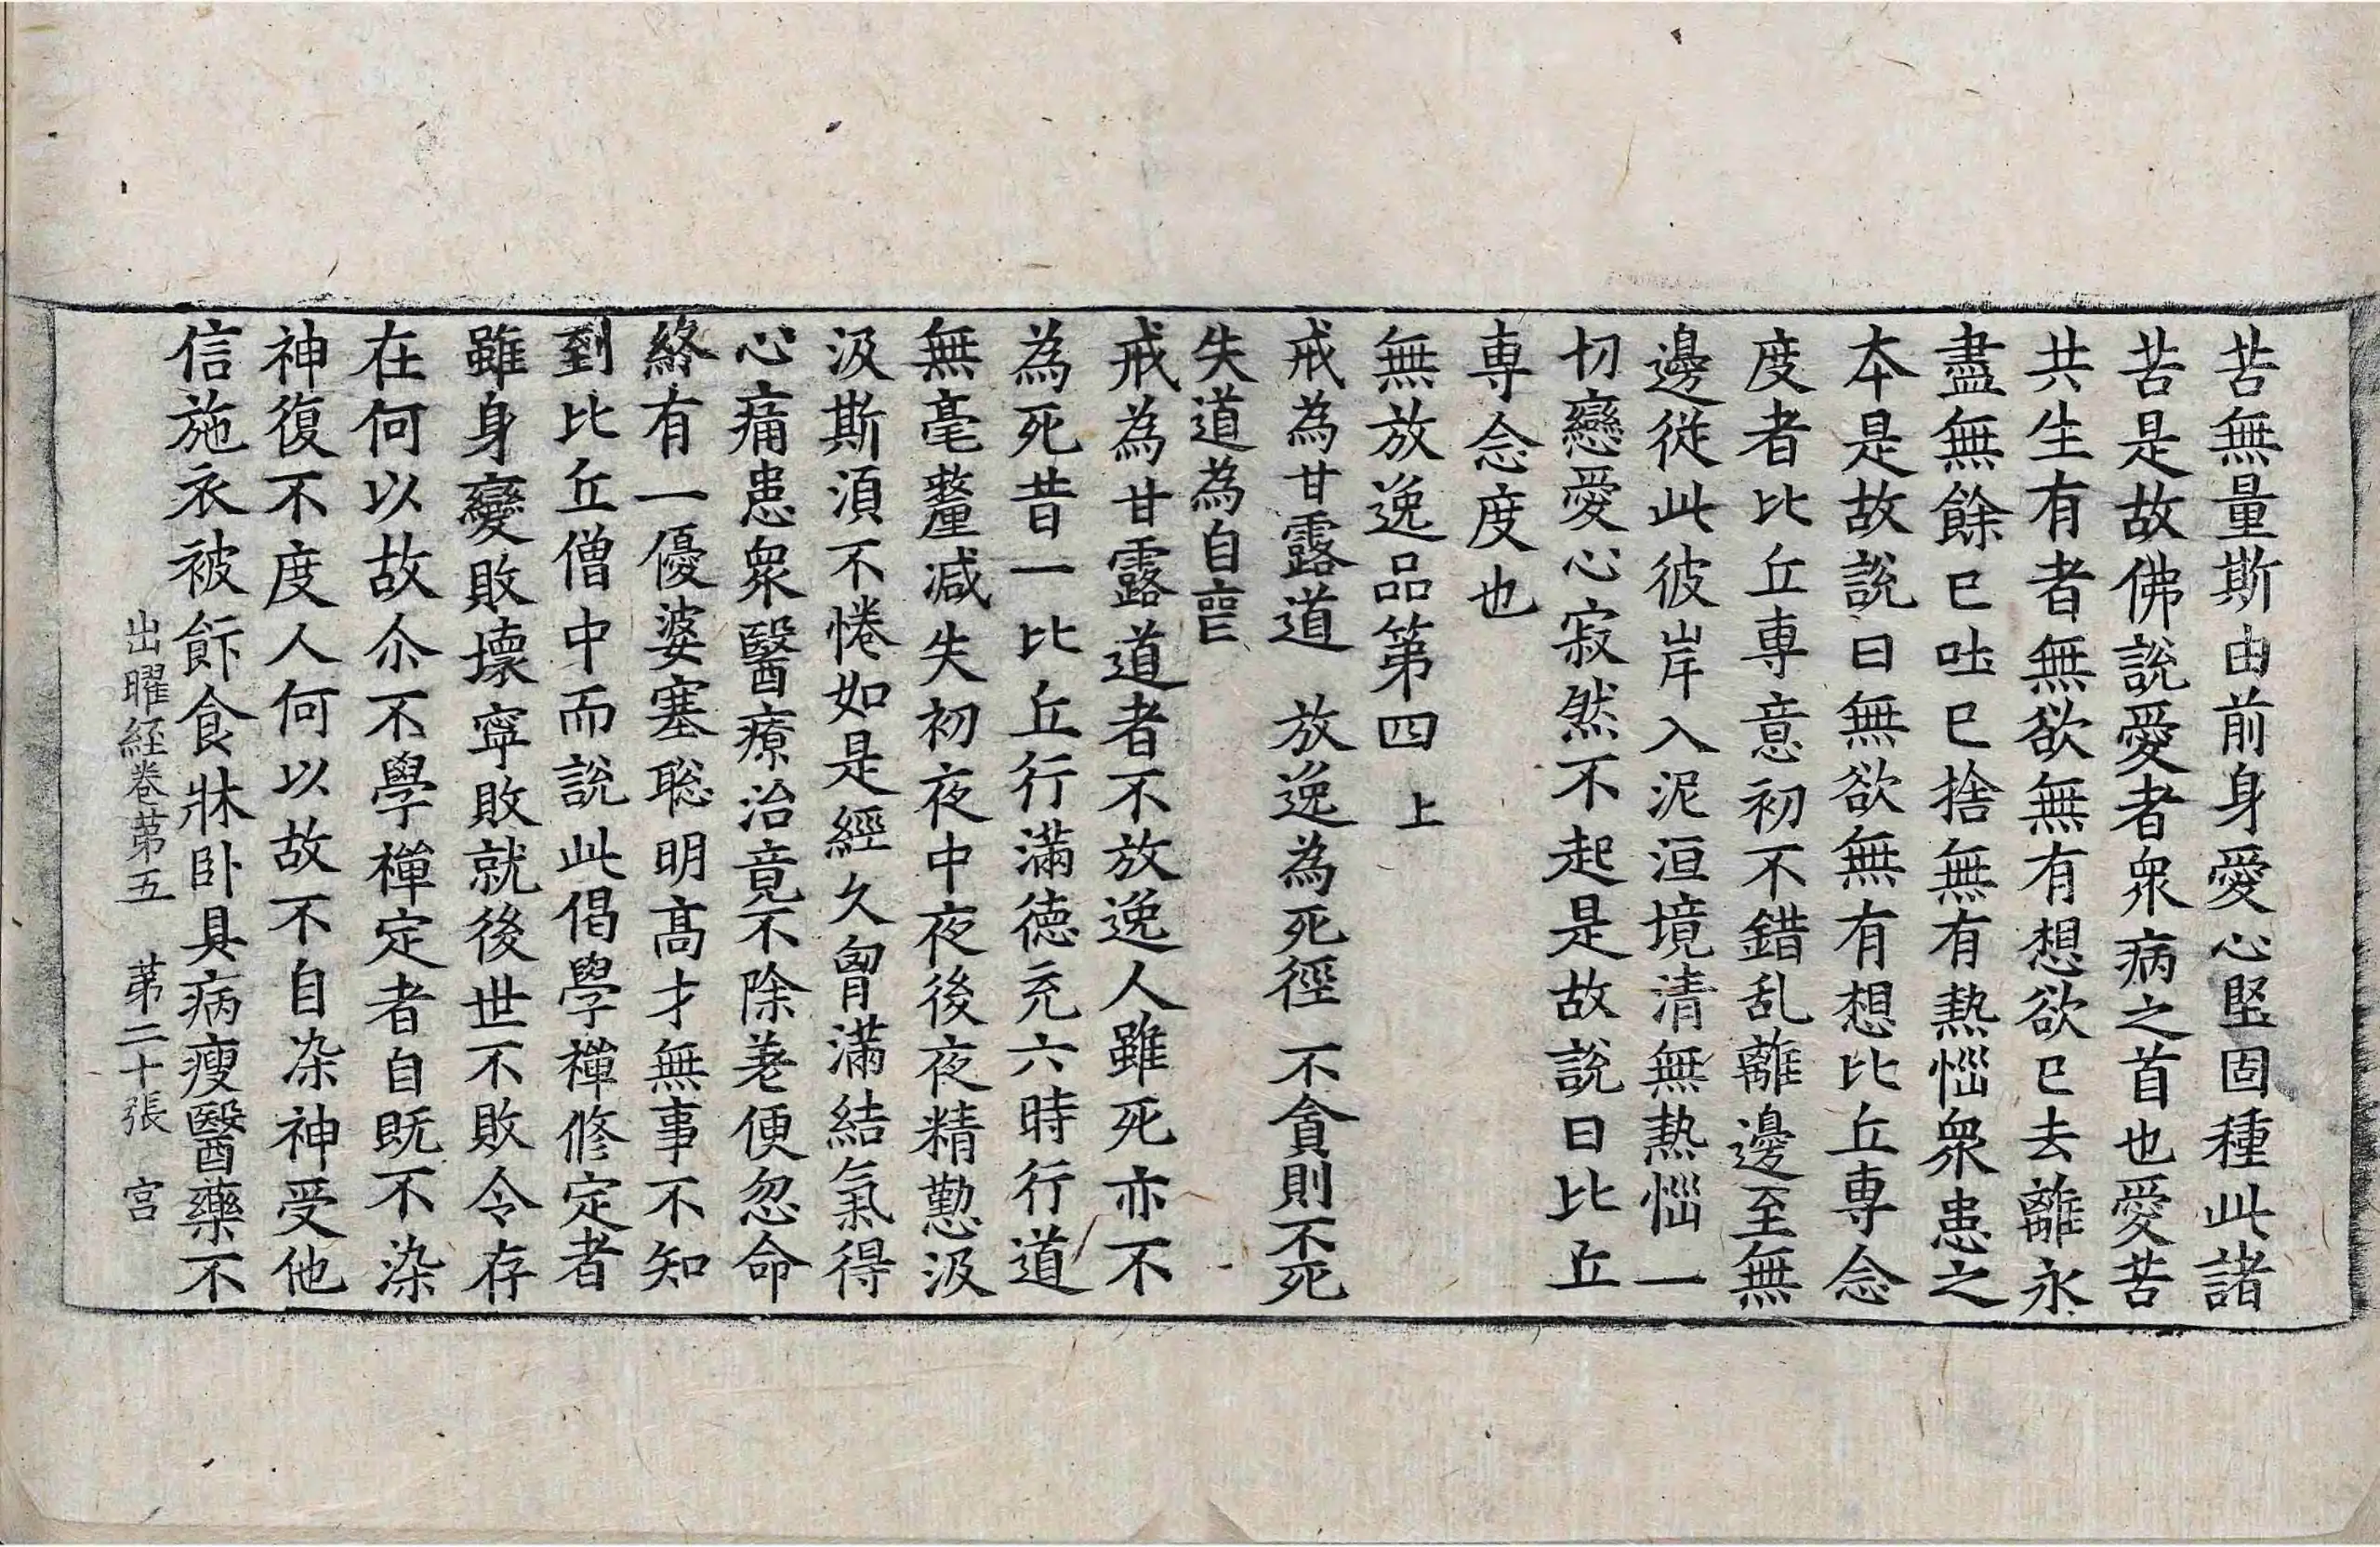 苦無量斯由前身愛心堅固種此諸
苦是故佛說愛者衆病之首也愛苦
共生有者無欲無有想欲已去離永
盡無餘已吐已捨無有熱惱衆患之
本是故說曰無欲無有想比丘專念
度者比丘專意初不錯乱離邊至無
邊從此彼岸入泥洹境清無熱惱一
切戀愛心寂然不起是故說曰比丘
専念度也
無放逸品第四 上
戒為甘露道 放逸為死徑 不貪則不死
失道為自喪
戒為甘露道者不放逸人雖死亦不
為死昔一比丘行滿德充六時行道
無毫釐減失初夜中夜後夜精懃汲
汲斯湏不惓如是經久胷滿結氣得
心痛患衆醫療治竟不除差便忽命
終有一優婆塞聡明高才無事不知
到比丘僧中而說此偈學禪修定者
雖身變敗壞寧敗就後世不敗令存
在何以故尒不學禪定者自既不染
神復不度人何以故不自染神受他
信施衣被飰食牀卧具病瘦醫藥不
出曜経卷苐五 苐二十張 宫